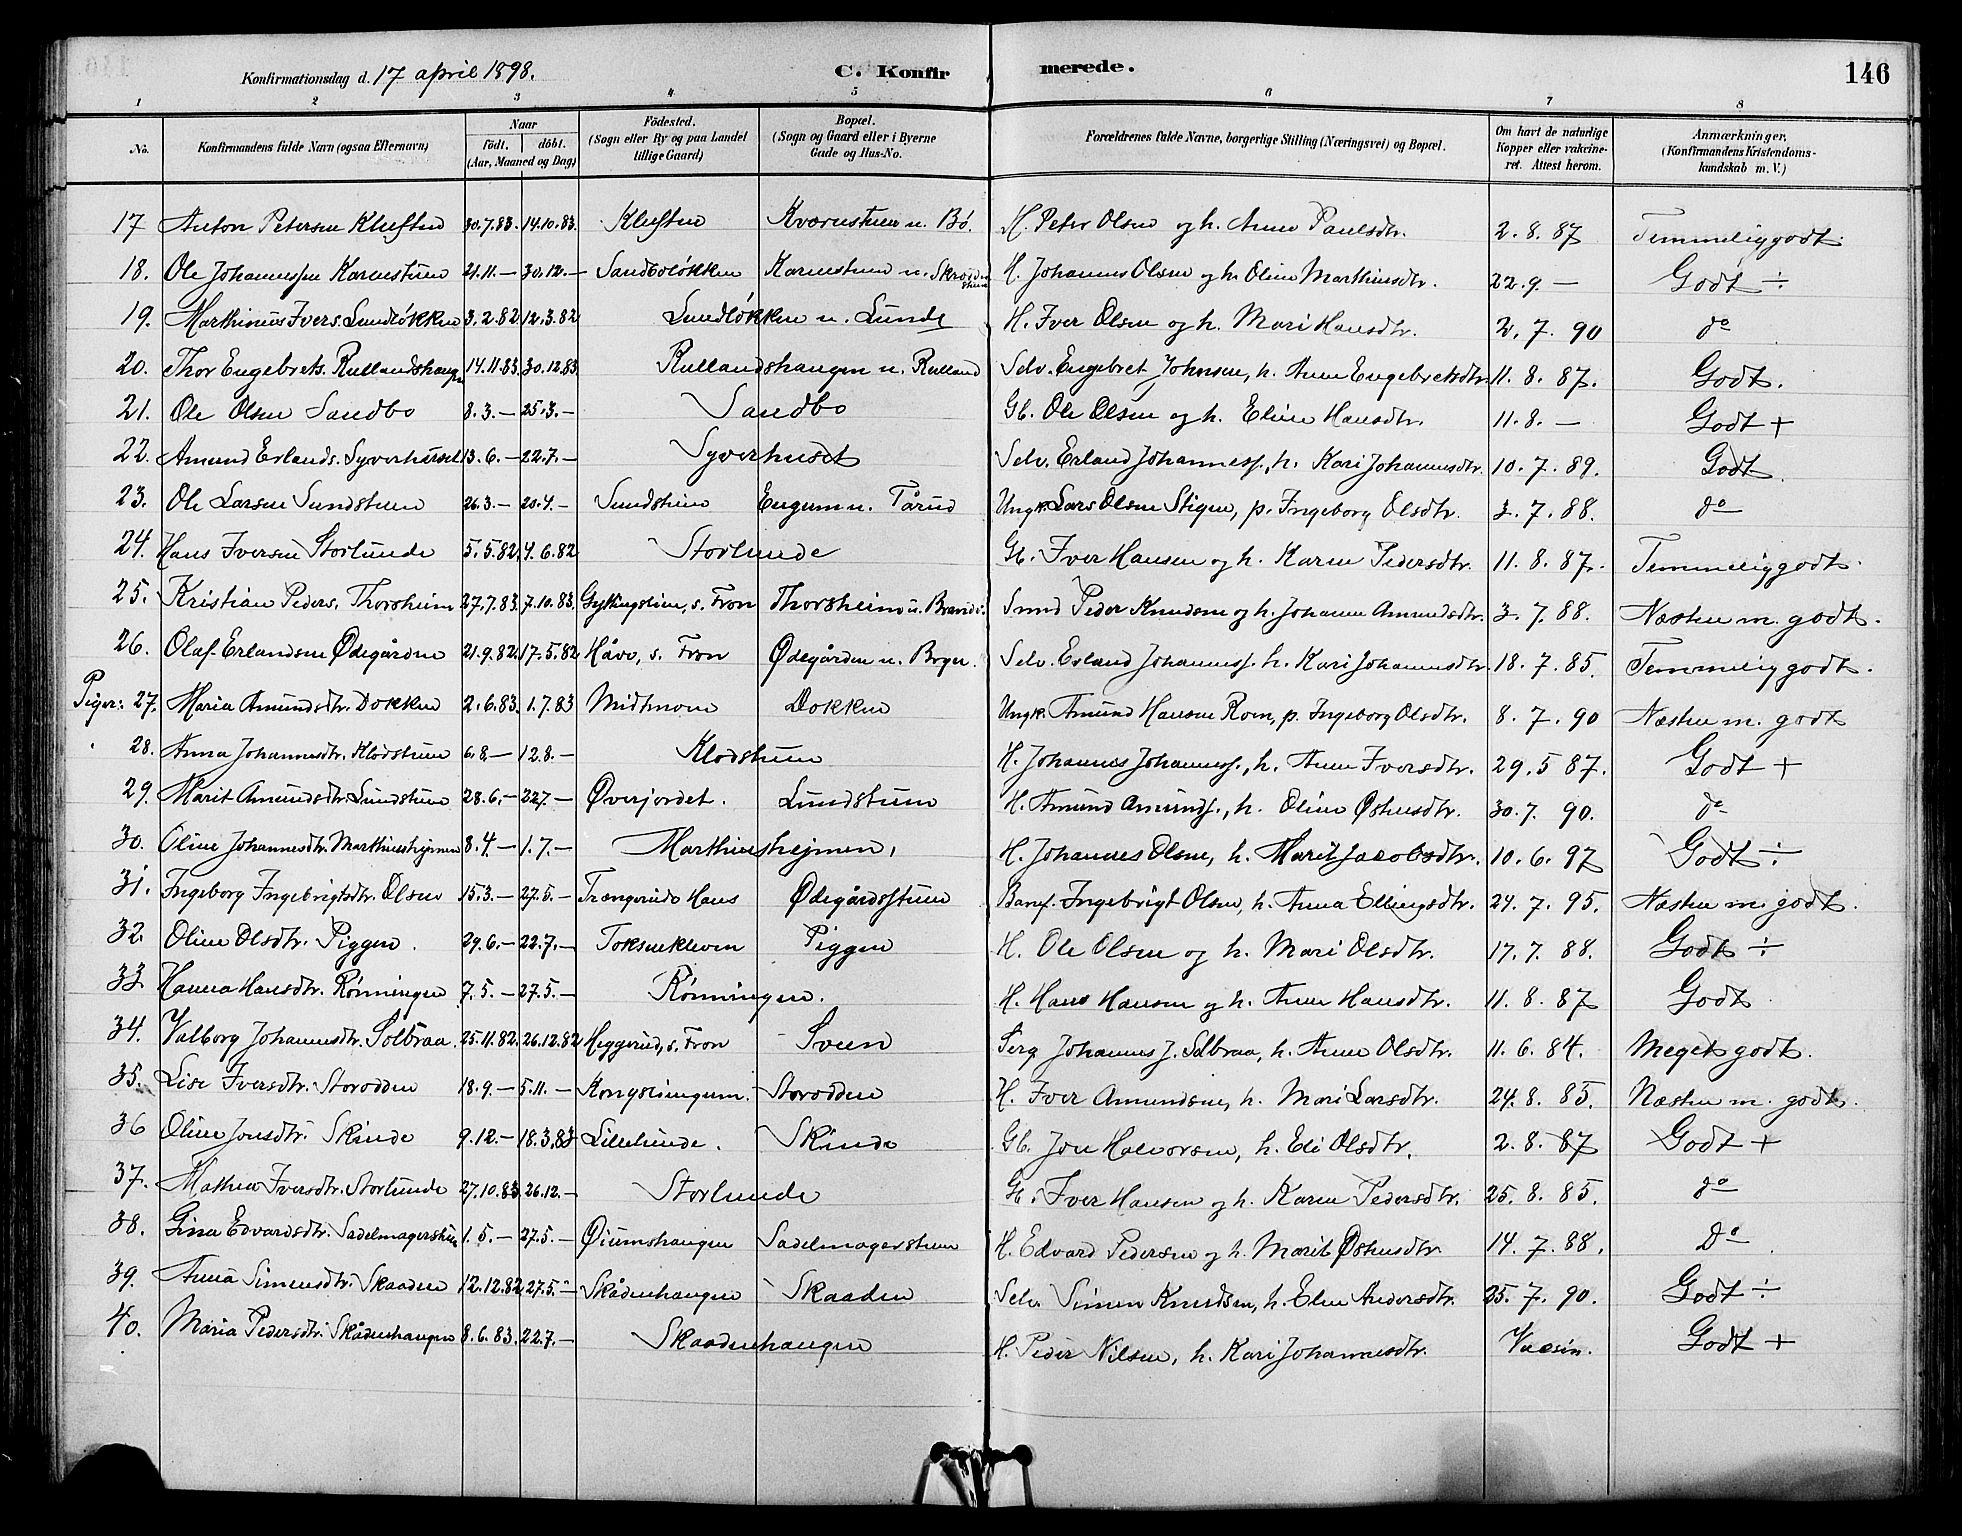 Konfirmationsdag d. 17 april 1898. C. Konfirmerede. 146
1 2 3 4 5 6 7 8
No. Konfirmandens fulde Navn (ogsaa Efternavn) Naar födt. döbt. (Aar, Maaned og Dag) Födested. (Sogn eller By og paa Landet tillige Gaard) Bopæl. (Sogn og Gaard eller i Byerne Gade og Hus-No. Forældrenes fulde Navne, borgerlige Stilling (Næringsvei) og Bopæl. Om havt de naturlige Kopper eller vakcineret. Attest herom. Anmærkninger, (Konfirmandens Kristendomskundskab m. V.)
17 Anton Petersen Kluften 30.7.83. 14.10.83. Kluften Kværnstuen u. Bö. H. Peter Olsen og h. Anne Paulsdtr. 2.8.87 Temmelig godt.
18. Ole Johannessen Karnestuen 21.11.— 30.12.— Sandboløkken Karnestuen u. H. Johannes Olsen og h. Oline Marthinsdtr. 22.9.— Godt ÷
19. Marthinus Ivers. Lundløkken 3.2.82 12.3.82 Lundløkken u. Lunde H. Iver Olsen og h. Mari Hansdtr. 2.7.90 do
20. Thor Engebrets. Rullandshaugen 14.11.83. 30.12.83 Rullandshaugen u. Rulland Selv. Engebret Johnsen, h. Anne Engebretsdtr. 11.8.87. Godt.
21. Ole Olsen Sandbo 8.3.— 25.3.— Sandbo Gb. Ole Olsen og h. Eline Hansdtr. 11.8.— Godt +
22. Amund Erlands. Syverhuset 13.6.— 22.7.— Syverhuset Selv. Erland Johanness., h. Kari Johannesdtr. 10.7.89. Godt.
23. Ole Larsen Sundstuen 26.3.— 20.4.— Sundstuen Engum u. Tårud Ungk. Lars Olsen Stigen, p. Ingeborg Olsdtr. 3.7.88. do
24. Hans Iversen Storlunde 5.5.82. 4.6.82 Storlunde Gb. Iver Hansen og h. Karen Pedersdtr. 11.8.87. Temmelig godt.
25. Kristian Peders. Thorsheim 27.7.83. 7.10.83. s. Fron Thorsheim u. Smed Peder Knudsen og h. Johanne Amundsdtr. 3.7.88. Næsten m. godt.
26. Olaf Erlandsen Ødegården 21.9.82. 17.5.82 Håve, s. Fron Ødegården u. Selv. Erland Johanness. h. Kari Johannesdtr. 18.7.85. Temmelig godt.
Piger: 27. Maria Amundsdtr. Dokken 2.6.83. 1.7.83 Midtmoen Dokken Ungk. Amund Hansen Rom, p. Ingeborg Olsdtr. 8.7.90 Næsten m. godt
28. Anna Johannesdtr. Klodstuen 6.8.— 12.8.— Klodstuen H. Johannes Johanness., h. Anne Iversdtr. 29.5.87. Godt +
29. Marit Amundsdtr. Lundstuen 28.6.— 22.7.— Øverjordet. Lundstuen H. Amund Amunds., h. Oline Østensdtr. 30.7.90. do
30. Oline Johannesdtr. Marthinshejmen 8.4.— 1.7.— Marthinshejmen, H. Johannes Olsen, h. Marit Jacobsdtr. 10.6.97 Godt ÷
31. Ingeborg Ingebrigtsdtr. Olsen 15.3.— 27.5.— Trangeruds Haus Ødegårdsstuen Ingebrigt Olsen, h. Anna Ellingsdtr. 24.7.95. Næsten m. godt.
32. Oline Olsdtr. Piggen. 29.6.— 22.7.— Toksekleven Piggen H. Ole Olsen og h. Mari Olsdtr. 17.7.88. Godt ÷
33 Hanna Hansdtr. Rönningen 7.5.— 27.5.— Rönningen. H. Hans Hansen og h. Anne Hansdtr. 11.8.87 Godt
34. Valborg Johannesdtr. Solbraa. 25.11.82. 26.12.82 Heggerud, s. Fron Sveen Serg. Johannes J. Solbraa, h. Anne Olsdtr. 11.6.84. Meget godt.
35. Lise Iversdtr. Storodden 18.9.— 5.11.— Kongsliengum. Storodden H. Iver Amundsen, h. Mari Larsdtr. 24.8.85. Næsten m. godt.
36 Oline Jonsdtr. Skinde 9.12.— 18.3.83 Lillelunde. Skinde Gb. Jon Halvorsen, h. Eli Olsdtr. 2.8.87 Godt +
37. Mathea Iversdtr. Storlunde 27.10.83 26.12.— Storlunde Gb. Iver Hansen og h. Karen Pedersdtr. 25.8.85. do
38. Gina Edvardsdtr. Sadelmagerstuen 1.5.— 27.5.— Øiumshaugen Sadelmagerstuen H. Edvard Pedersen og h. Marit Østensdtr. 14.7.88. Do
39. Anna Simensdtr. Skaaden 12.12.82 27.5.— Skådenhaugen Skaaden Selv. Simen Knudsen, h. Eline Andersdtr. 25.7.90. Godt ÷
40. Maria Pedersdtr. Skådenhaugen 8.6.83. 22.7.— Skaadenhaugen H. Peder Nilsen, h. Kari Johannesdtr. Vacsin. Godt +